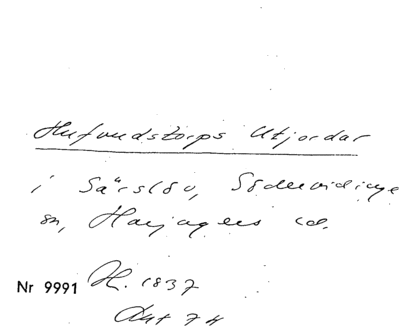 Hufvudstorps Utjordar
i Särslöv, Södervidinge
sn, Harjagers hd.
Nr 9991 H. 1837
Akt 74